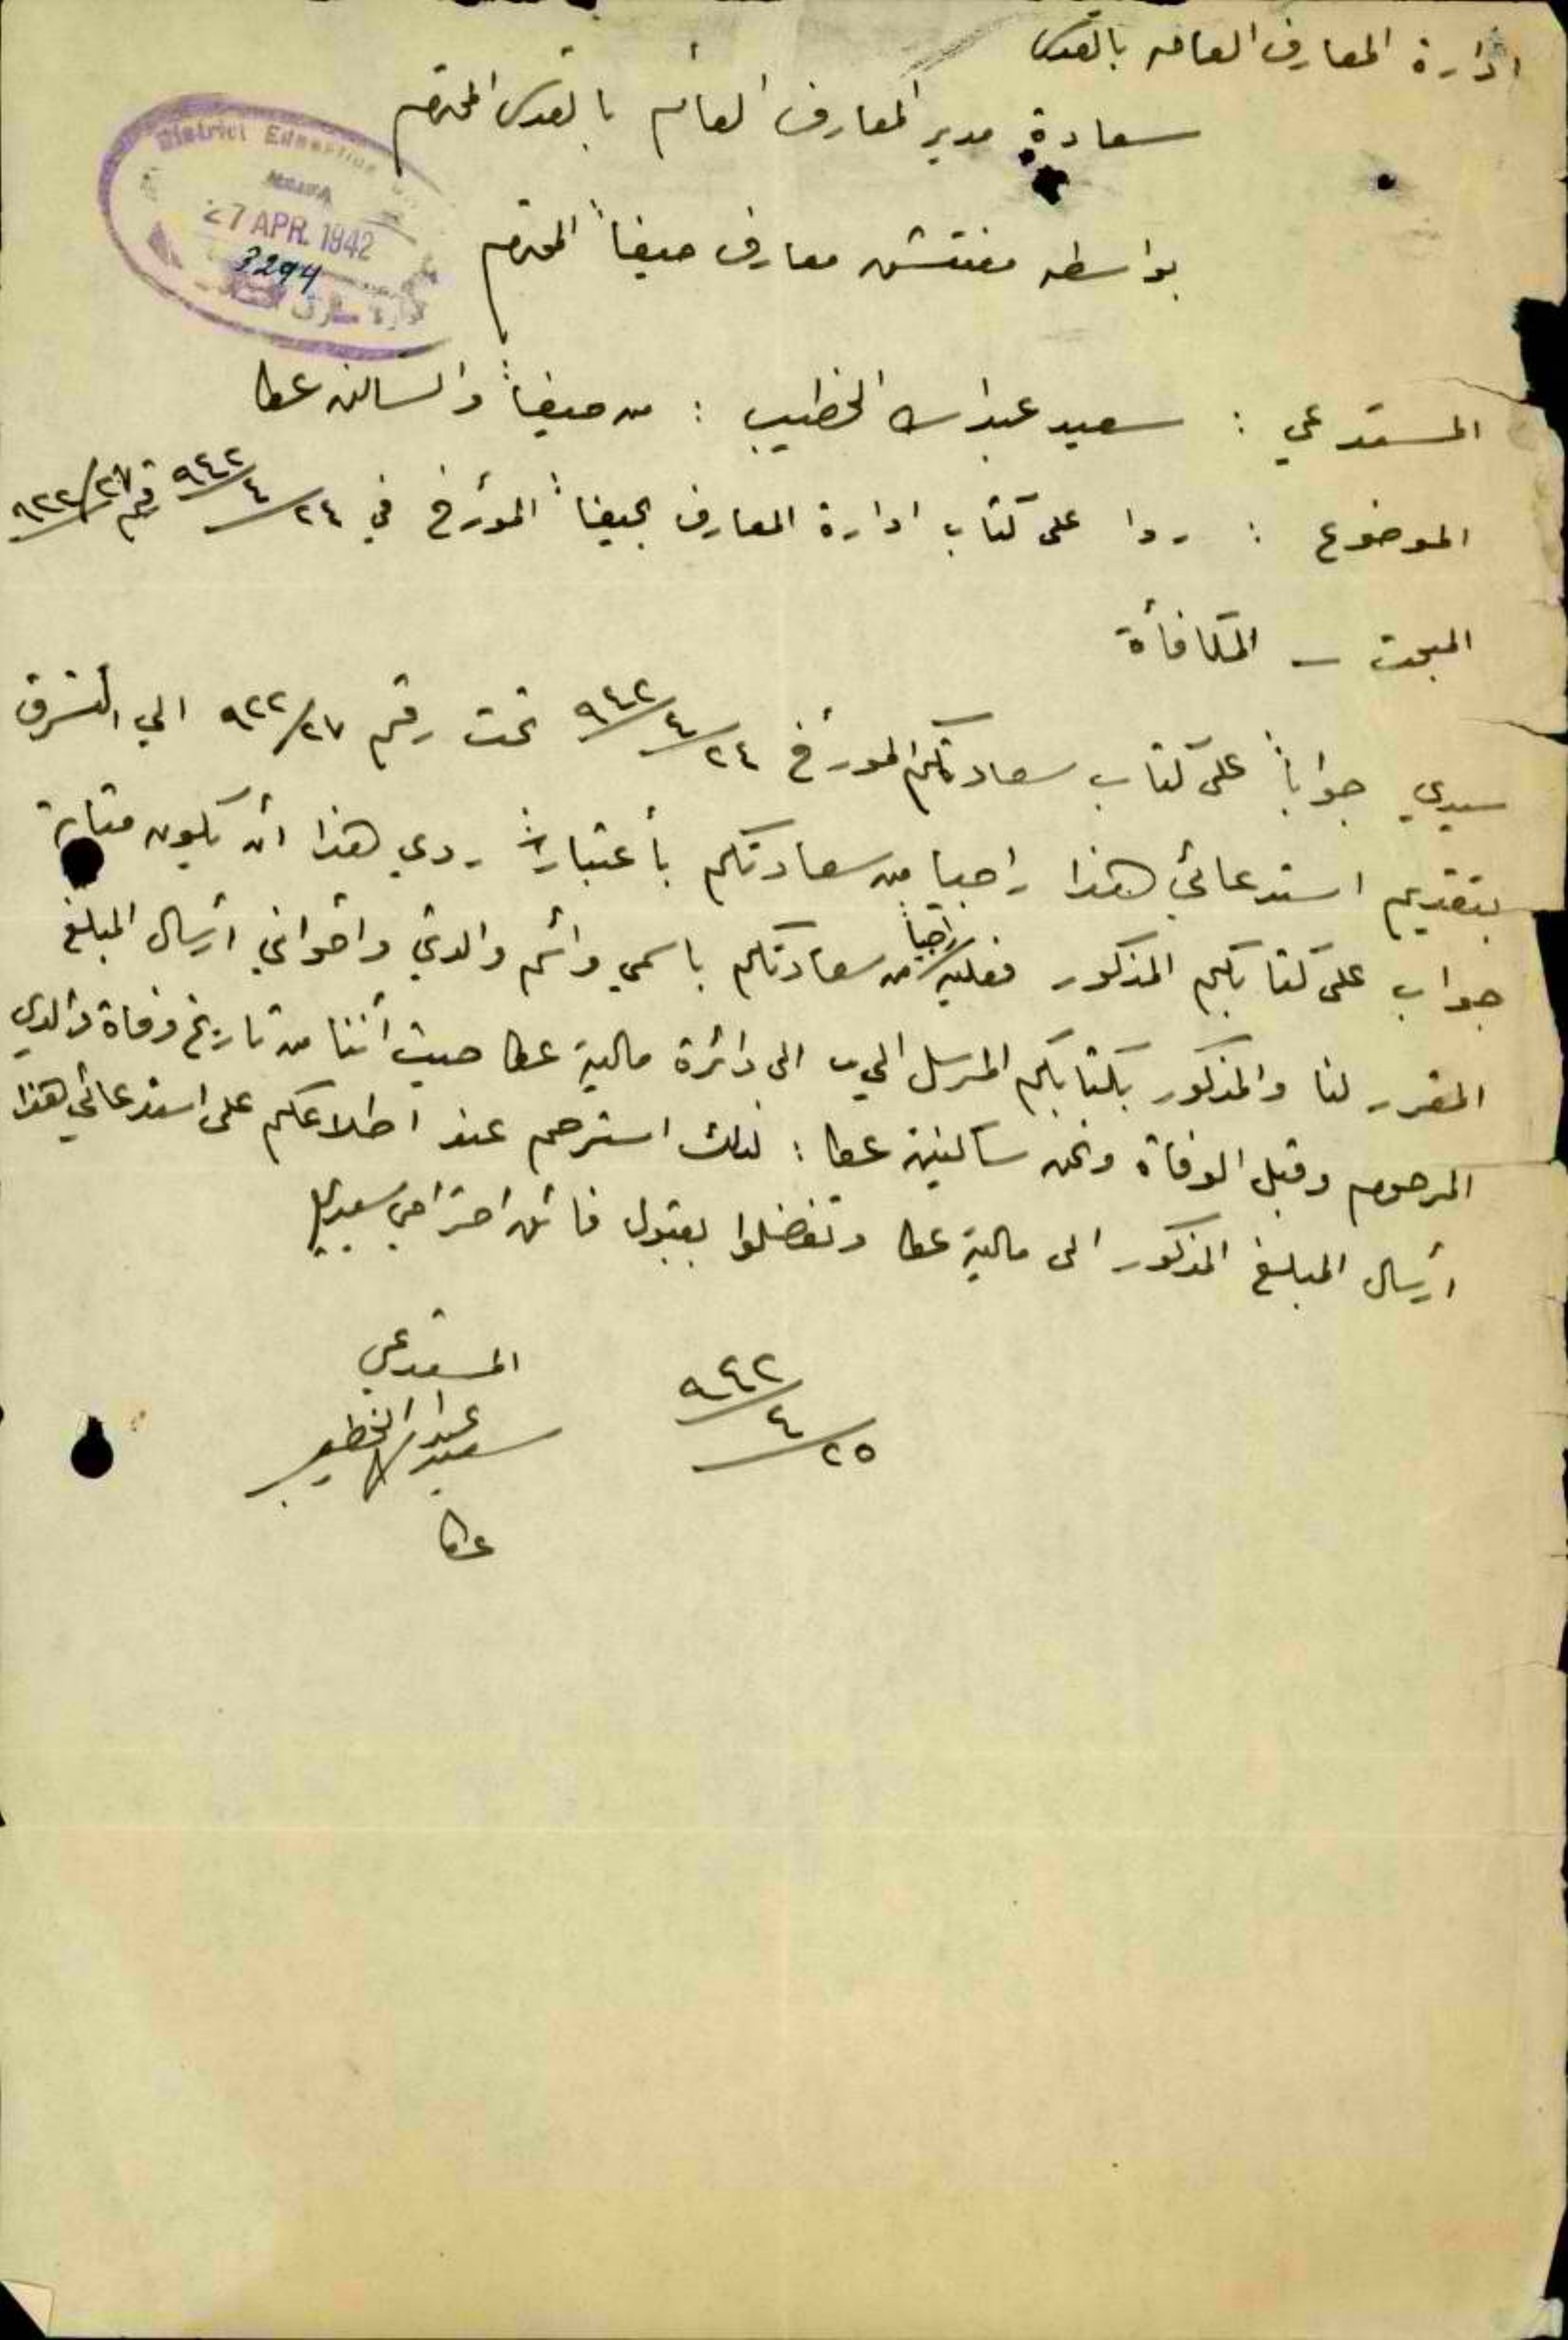 ادارة المعارف العامه بالقدس
سعادة مدير المعارف العام بالقدس المحترم
District Education
HAIFA
27 APR. 1942
3294
بواسطه مفتش معارف حيفا المحترم
المستدعي : سعيد عبدالله الخطيب : من حيفا والساكن عكا
الموضوع : ردا على كتاب ادارة المعارف بحيفا المؤرخ في ٢٤/٤/٩٤٢ رقم ٩٢٢/٢٧
المبحث - المكافأة
سيدي جواباً على كتاب سعادتكم المورخ ٢٤/٤/٩٤٢ تحت رقم ٩٢٢/٢٧ الي اتشرف
بتقديم استدعائي هذا راجيا من سعادتكم بأعتبار ردي هذا ان يكون مثابة
جواب على كتابكم المذكور فعليه راجياً من سعادتكم باسمي واسم والدتي واخواني ارسال المبلغ
المقرر لنا والمذكور بكتابكم المرسل الي الى دائرة مالية عكا حيث أننا من تاريخ وفاة والدي
المرحوم وقبل الوفاة ونحن ساكنين عكا : لذلك استرحم عند اطلاعكم على استدعائي هذا
ارسال المبلغ المذكور الى مالية عكا وتفضلوا بقبول فائق احترامي سيدي
المستدعي
٢٥/٤/٩٤٢
سعيد عبدالله الخطيب
عكا